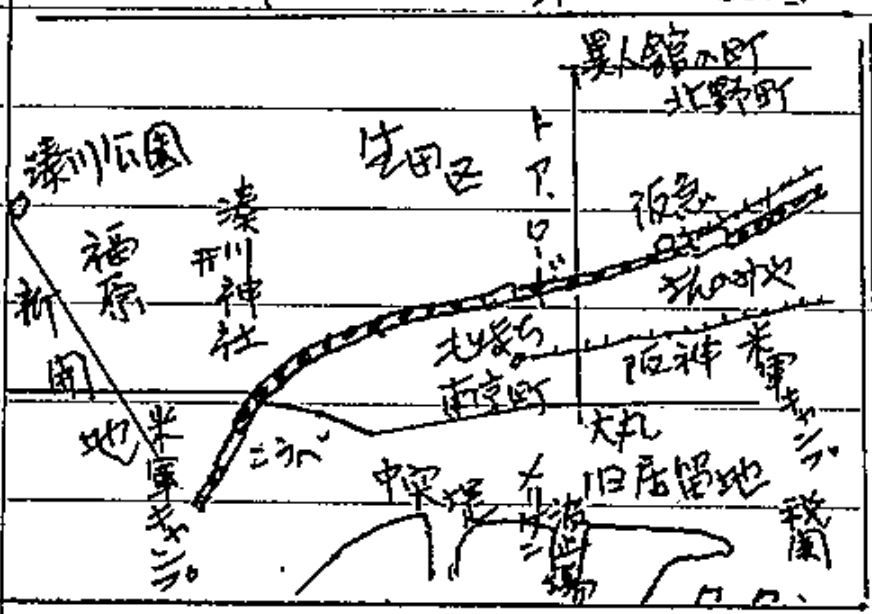 異人館の町
北野町
湊川公園
生田区
トアロード
福原
湊川神社
阪急
さんのみや
新開地
阪神
米軍キャンプ
南京町
大丸
米軍キャンプ
こうべ
中突堤
メリケン波止場
旧居留地
税関